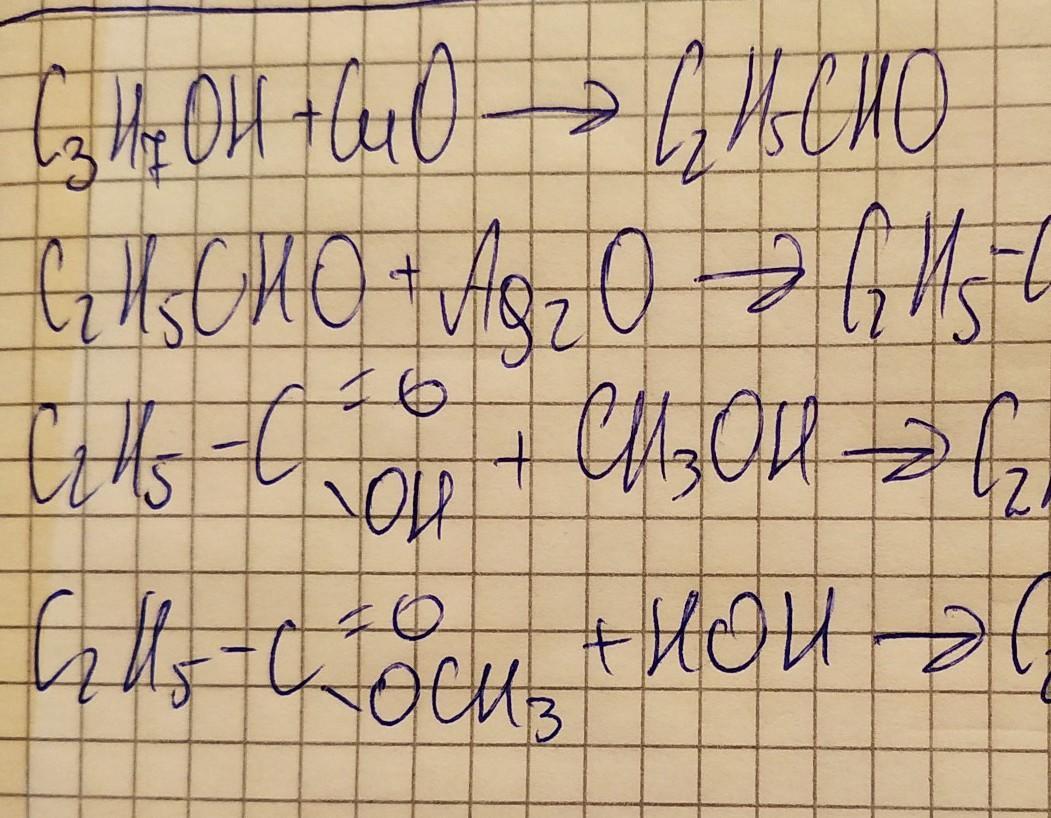 C₃H₇OH + CuO → C₂H₅CHO
C₂H₅CHO + Ag₂O → C₂H₅-C
C₂H₅-C=O\OH + CH₃OH → C₂
C₂H₅-C=O\OCH₃ + HOH → C